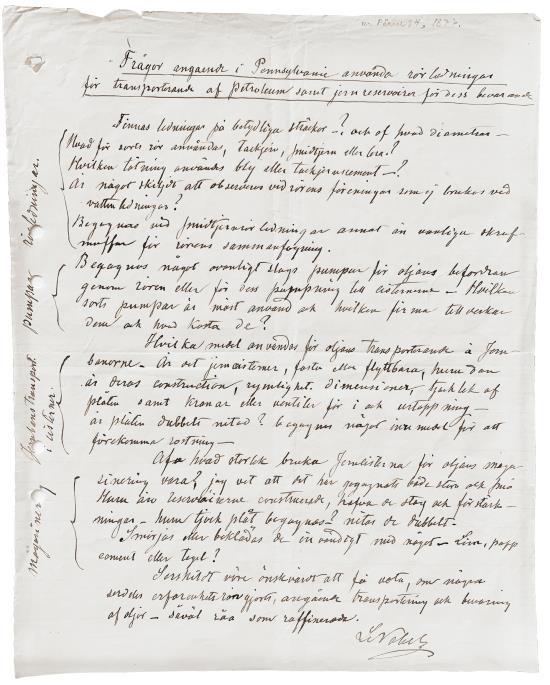 Frågor angaende i Pennsylvanie använda rörledningar
för transporterande af Petroleum samt jern reservoirer för dess bevarande
Finnas ledningar på betydliga sträckor -? och af hvad diameter -
Hvad för sorts rör användas, tackjern, smidtjern eller bra?
Hvilken tätning användes bly eller tackjernscement -?
Är något skiljdt att observera vid rörens föreningar som ej brukas vid
vattenledningar?
Begagnas vid smidtjernsrörledningar annat än vanliga skruf-
muffar för rörens sammanfogning.
Begagnas något ovanligt slags pumpar för oljans befordran
genom rören eller för dess pumpning till cisternerne - Hvilken
sorts pumpar är mäst använd och hvilken firma tillverkar
dem och hvad kosta de?
Hvilka medel användas för oljans transporterande å Jern
banorne - Är det jerncisterner, fasta eller flyttbara, huru dan
är deras construction, rymlighet, dimensioner, tjocklek af
plåten samt kranar eller ventiler för i och urtappning -
är plåten dubbelt nitad? begagnas något medel för att
förekomma rostning -
Af hvad storlek bruka Jerncisterna för oljans maga-
sinering vara? jag vet att det här begagnats både stora och små
Huru äro reservoirerne construerade, hafva de stag och förstärk-
ningar - huru tjock plåt begagnas? nitas de dubbelt -
Smörjas eller beklädas de invändigt med något - Lera, papp
cement eller tegel?
Serskildt vore önskvärdt att få veta, om några
serskildta erfarenhetsrön gjorts, angående transportering och bevaring
af oljor - såväl råa som raffinerade.
LNobel
rörledningar.
pumpar
Jernbanstransport
i cisterner.
Magasinering